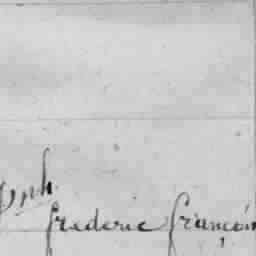 frederic françois